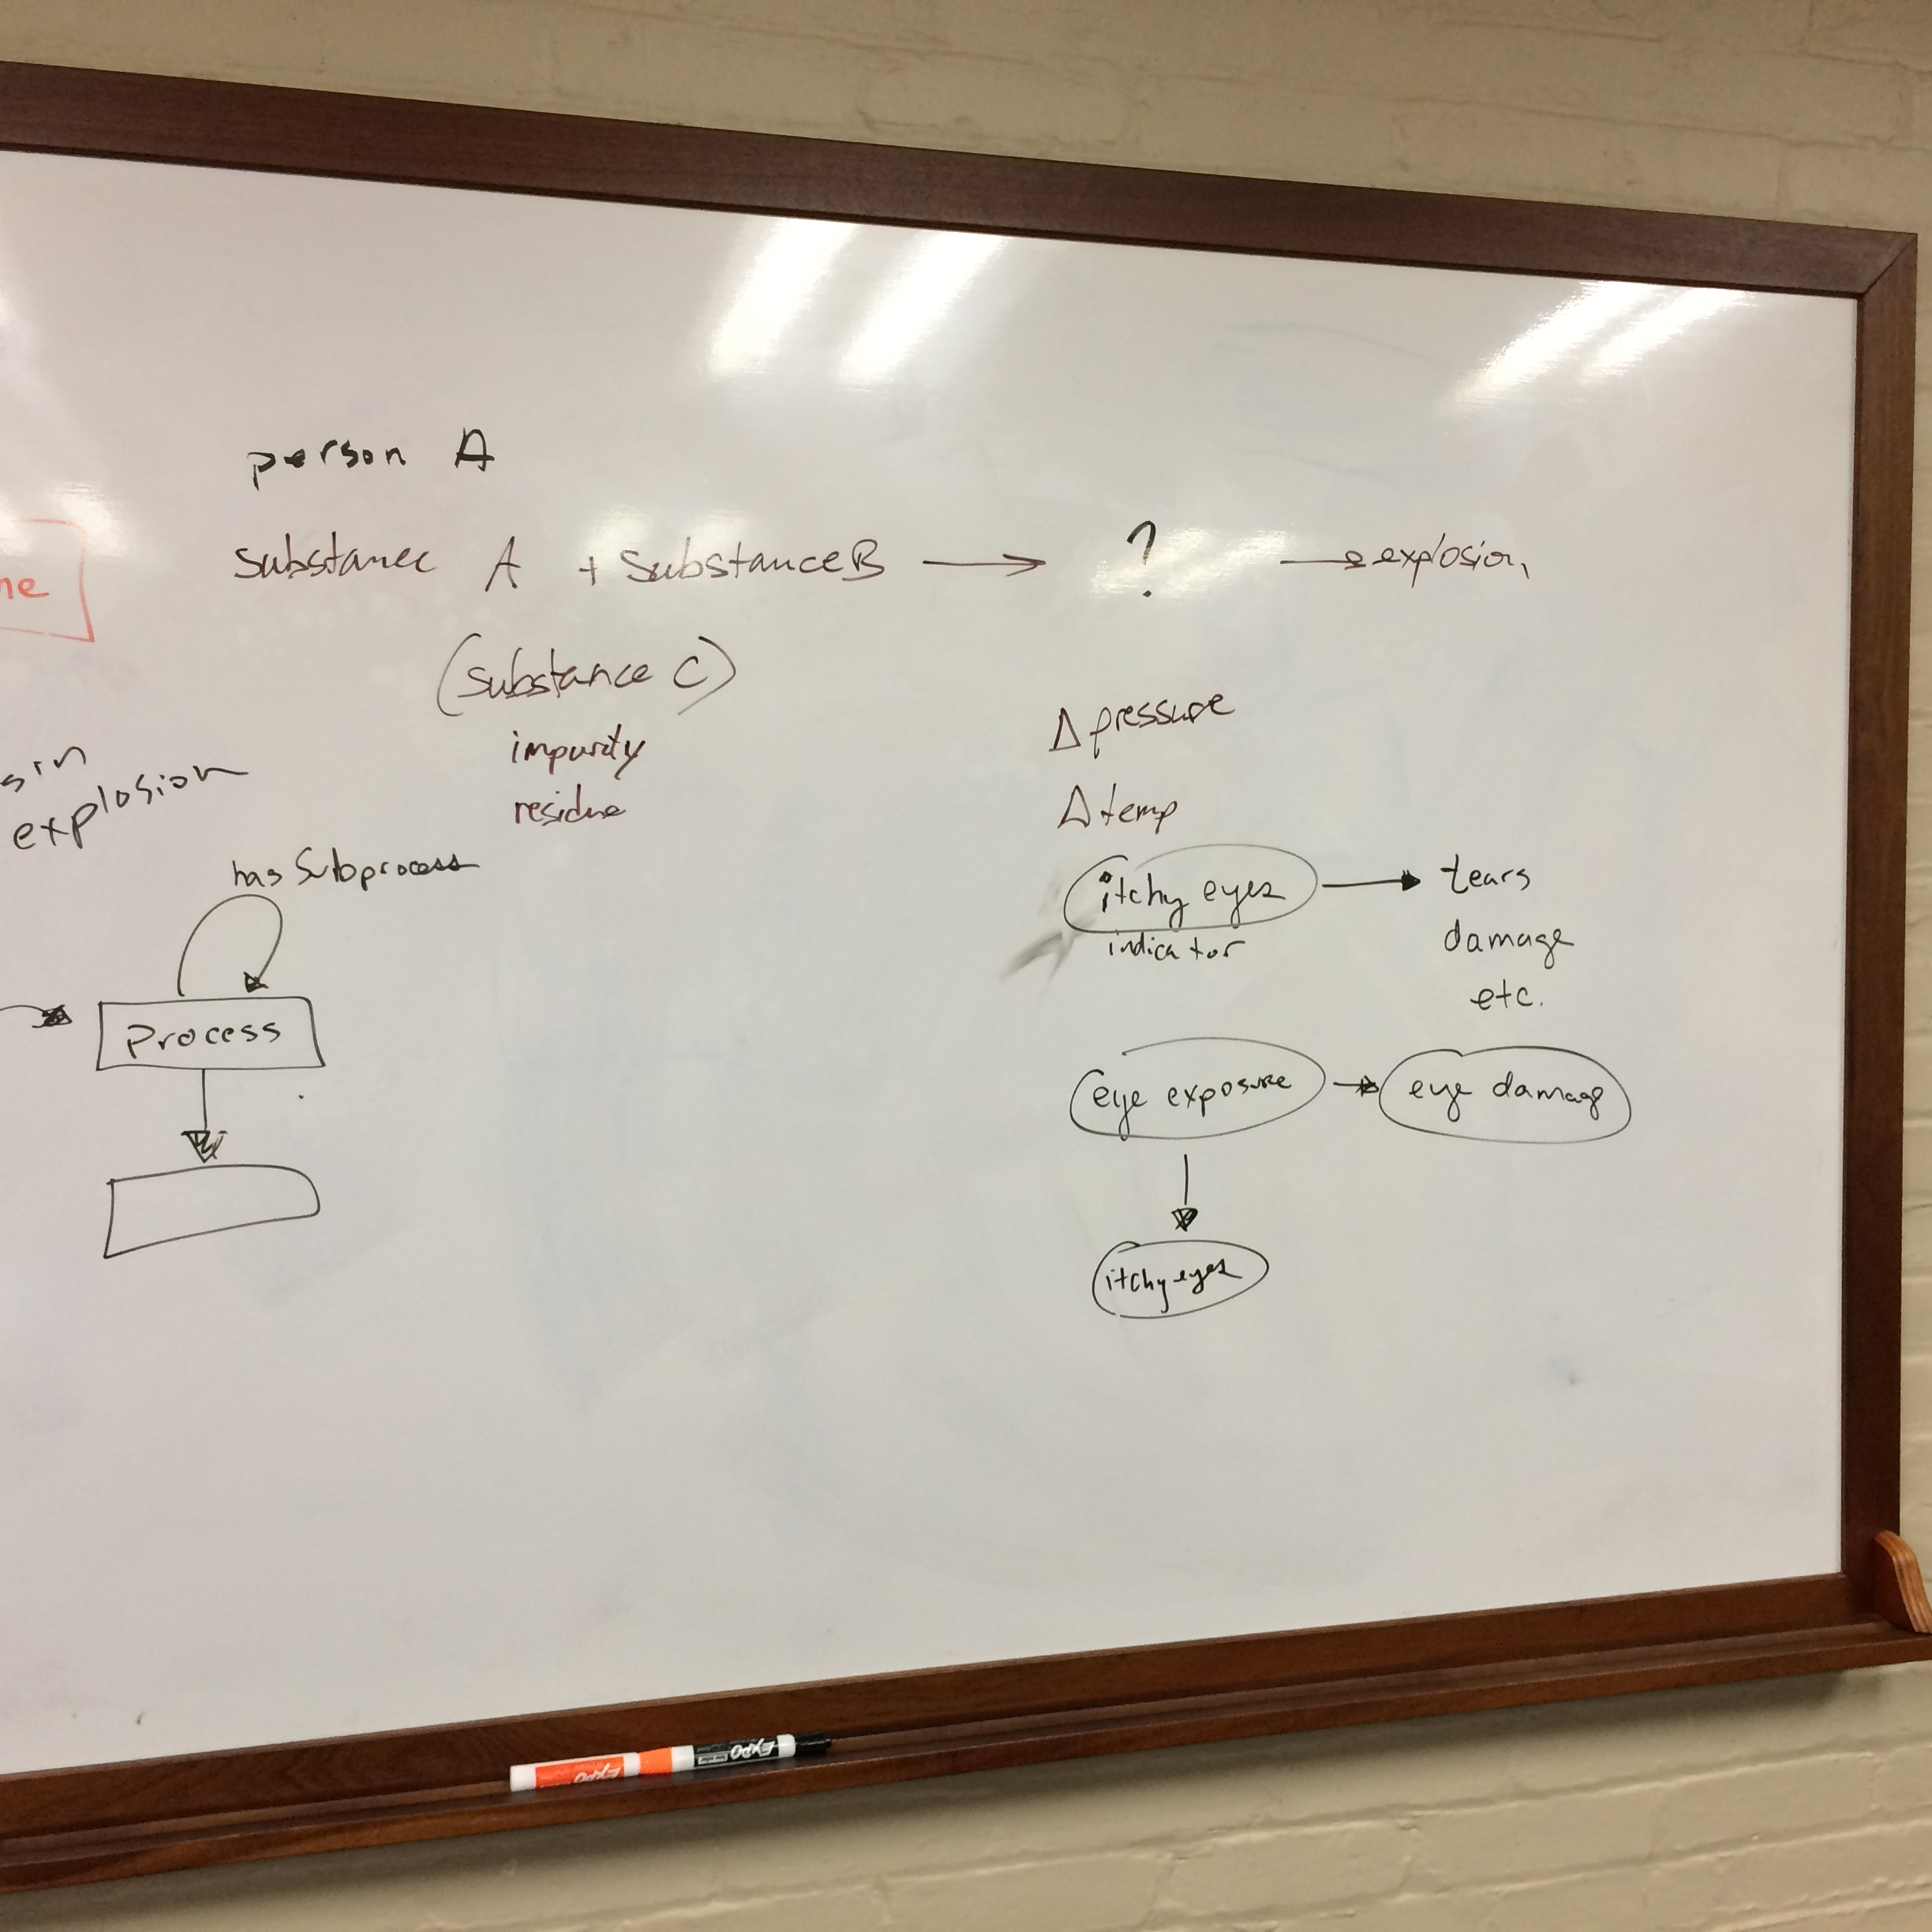 person A
substance A + substance B → ? → explosion
(substance C)
impurity
residue
explosion
has Subprocess
Process
Δ pressure
Δ temp
itchy eyes → tears
indicator
damage
etc.
eye exposure → eye damage
itchy eyes
EXPO EXPO